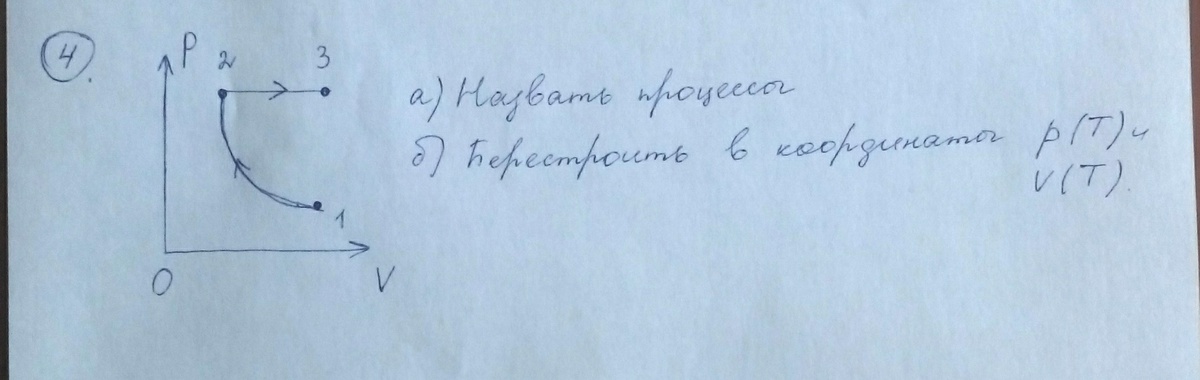 4.
P 2 3
а) Назвать процессы
б) Перестроить в координаты p(T) и
V(T).
1
O V